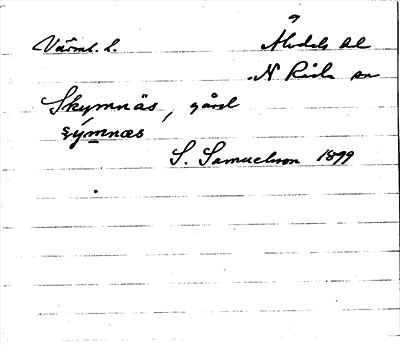 Värml. l. Älvdals hd
N Råda sn
Skymnäs, gård
sýmnæs
S. Samuelsson 1899